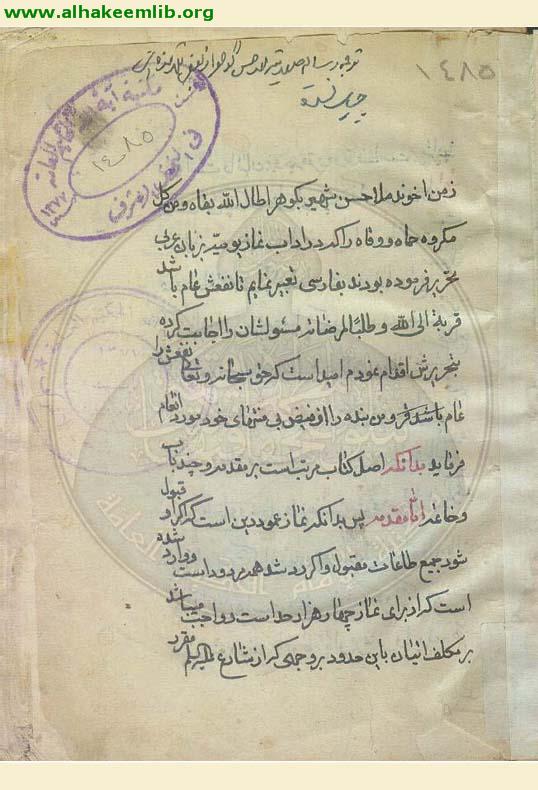 www.alhakeemlib.org
١٤٨٥
چاپ نشده
مكتبة آية الله الحكيم العامة
١٤٨٥
في النجف الاشرف
زمن اخوند ملا حسن شهیر بکوهر اطال الله بقاه ومن کل
مکروه حماه ووقاه را که در اداب نماز یومیه بزبان عربی
تحریر فرموده بودند بفارسی تعبیر نمایم تا نفعش عام باشد
قربة الی الله وطلبا لمرضاته مسئولشان را اجابت کرده
بتحریرش اقدام نمودم امید است که حق سبحانه وتعالی نفعش را
عام باشد ومن بنده را از فیض بی منتهای خود مورد انعام
فرماید بدانکه اصل کتاب مرتب است بر مقدمه وچند باب
وخاتمه اما مقدمه پس بدانکه نماز عمود دین است که اکر او قبول
شود جمیع طاعات مقبول واکر رد شد همه مردود است ووارد شده
است که از برای نماز چهار هزار حد است وواجب میباشد
بر مکلف اتیان باین حدود بر وجهی که از شارع علیه السلام مقرر